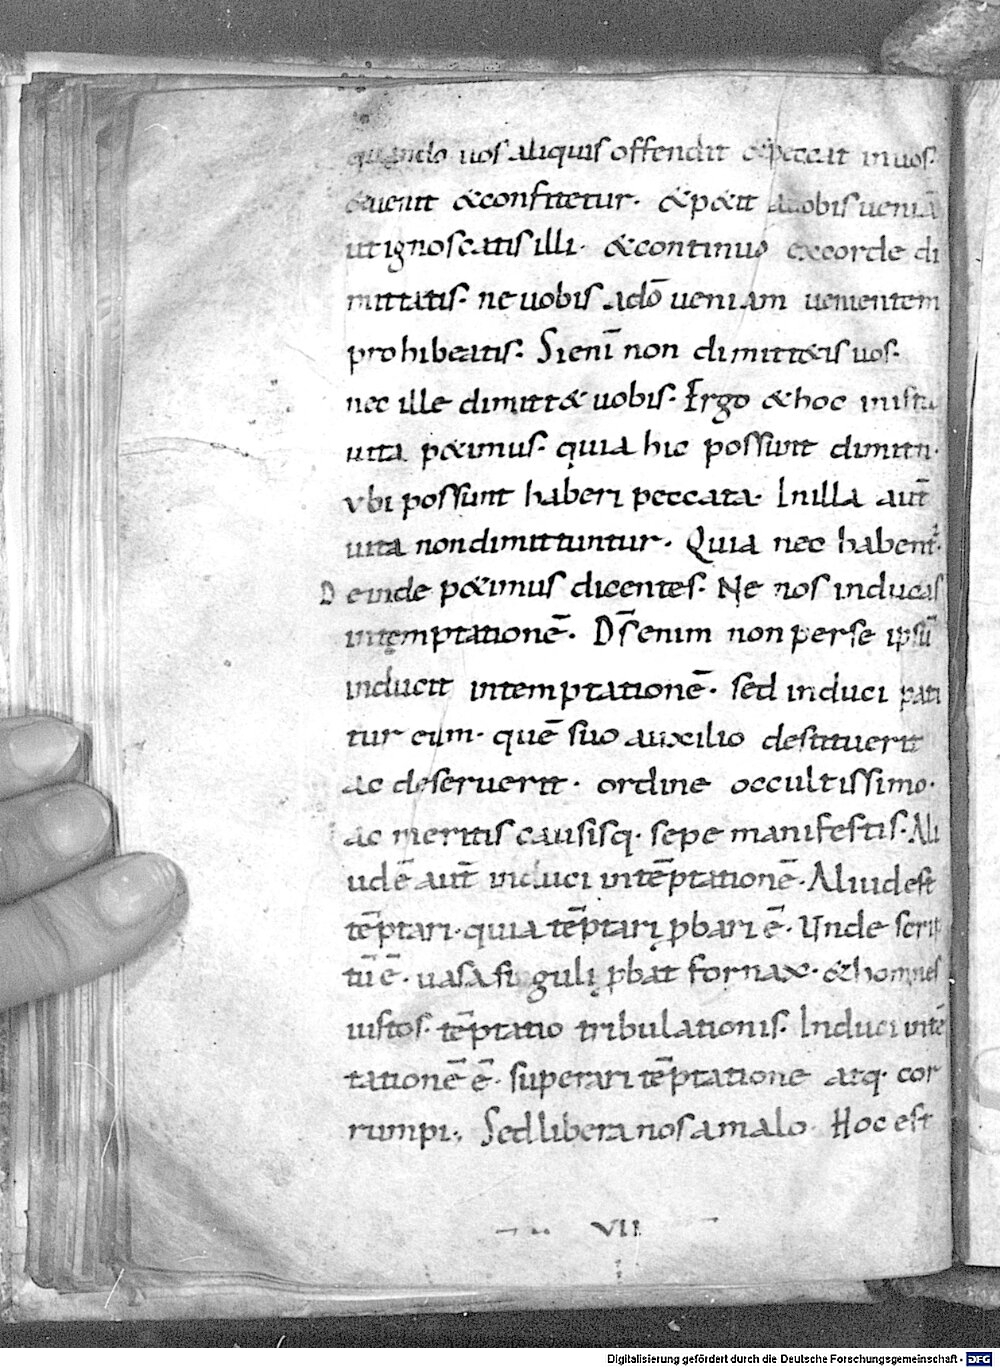 quando uos aliquis offendit & peccat in uos.
& uenit & confitetur. & p&it a uobis ueniā
ut ignoscatis illi. & continuo ex corde di
mittatis. ne uobis a dō ueniam uenientem
prohibeatis. Si eni̅ non dimitt&is uos.
nec ille dimitt& uobis. Ergo & hoc in ista
uita p&imus. quia hic possunt dimitti.
vbi possunt haberi peccata. In illa aut̅
uita non dimittuntur. Quia nec habent᷑.
Deinde p&imus dicentes. Ne nos inducas
in tęmptationē. Ds̅ enim non per se ipsū
inducit in temptationē. sed induci pati
tur eum. quē suo auxilio destituerit
ac deseruerit. ordine occultissimo.
ac meritis causisq. sepe manifestis. Ali
ud ē aut̅ induci in tēptationē. Aliud est
tēptari. quia tēptari ꝓbari ē. Unde scrip
tū ē. uasa figuli ꝓbat fornax. & homines
iustos. tēptatio tribulationis. Induci in tē
tationē ē. superari tēptatione atq. cor
rumpi. Sed libera nos a malo. Hoc est
VII
Digitalisierung gefördert durch die Deutsche Forschungsgemeinschaft - DFG